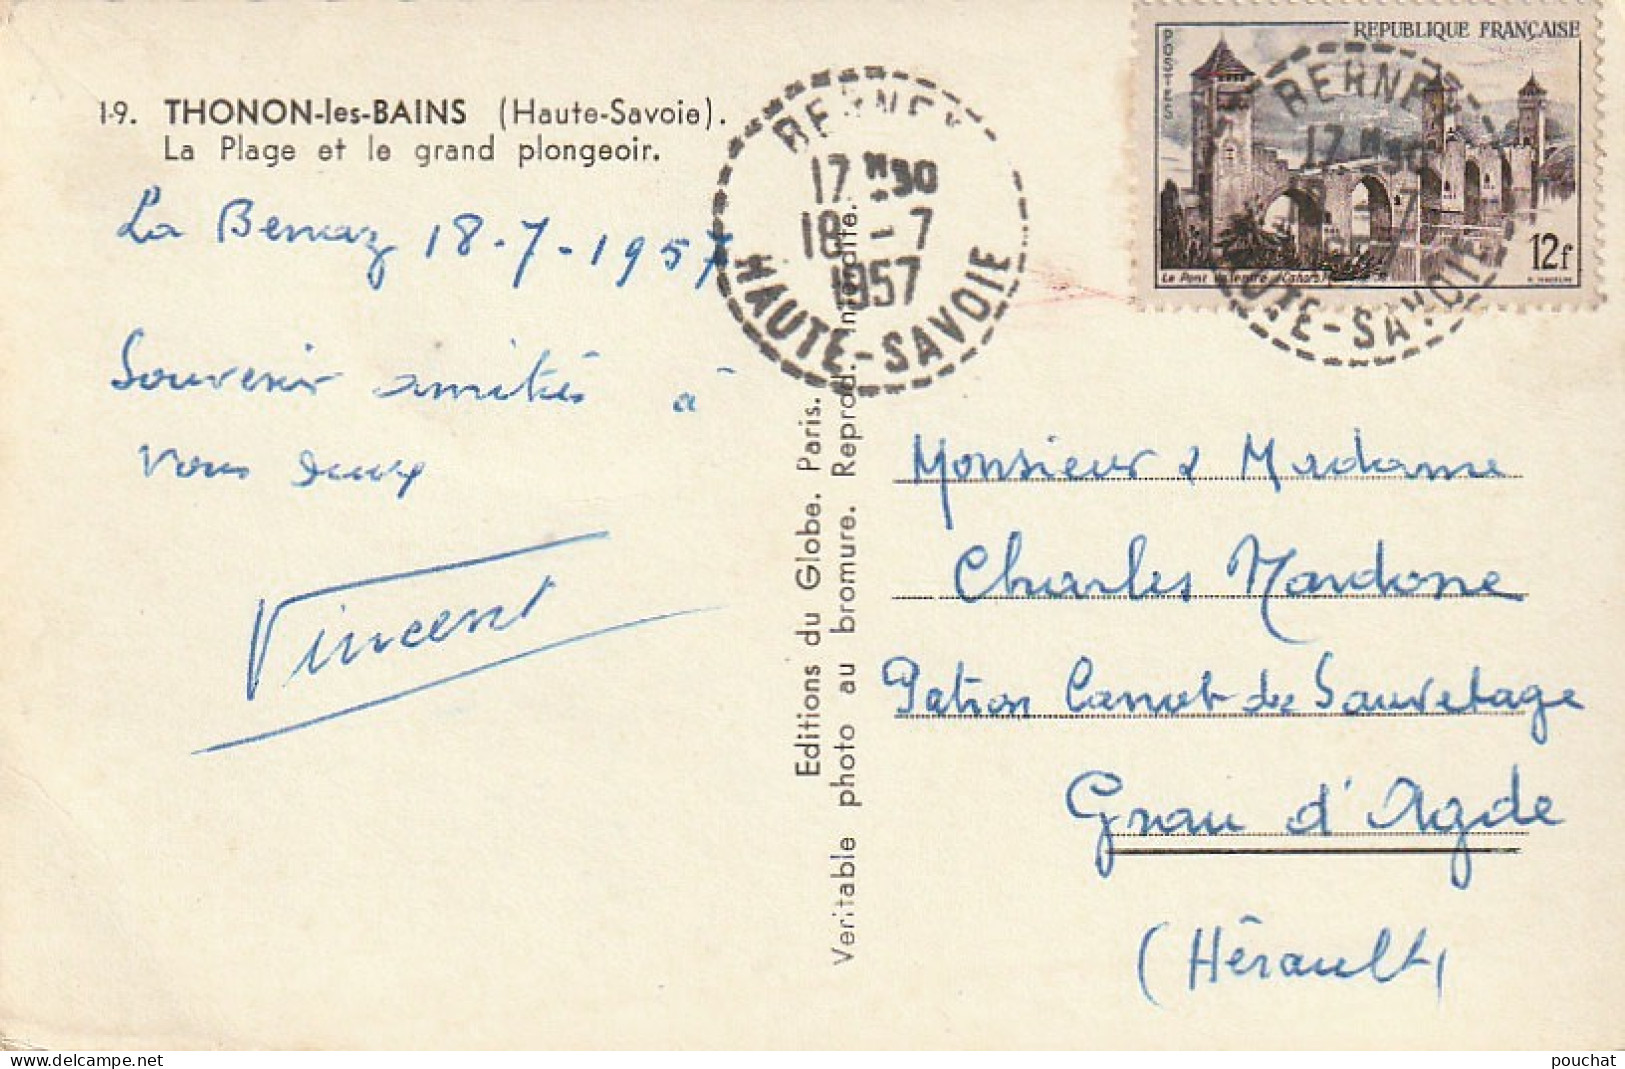 1-9. THONON-les-BAINS (Haute-Savoie).
La Plage et le grand plongeoir.
La Bernaz 18-7-1957
Souvenir amitiés à
vous deux
Vincent
Editions du Globe. Paris.
Veritable photo au bromure. Reprod. Interdite.
BERNEX
17 H30
18 - 7
1957
HAUTE-SAVOIE
REPUBLIQUE FRANÇAISE
POSTES
12f
Le Pont Valentré (Cahors)
BERNEX
17 H30
HAUTE-SAVOIE
Monsieur & Madame
Charles Mardone
Patron Canot de Sauvetage
Grau d'Agde
(Hérault)
delcampe.net
pouchat